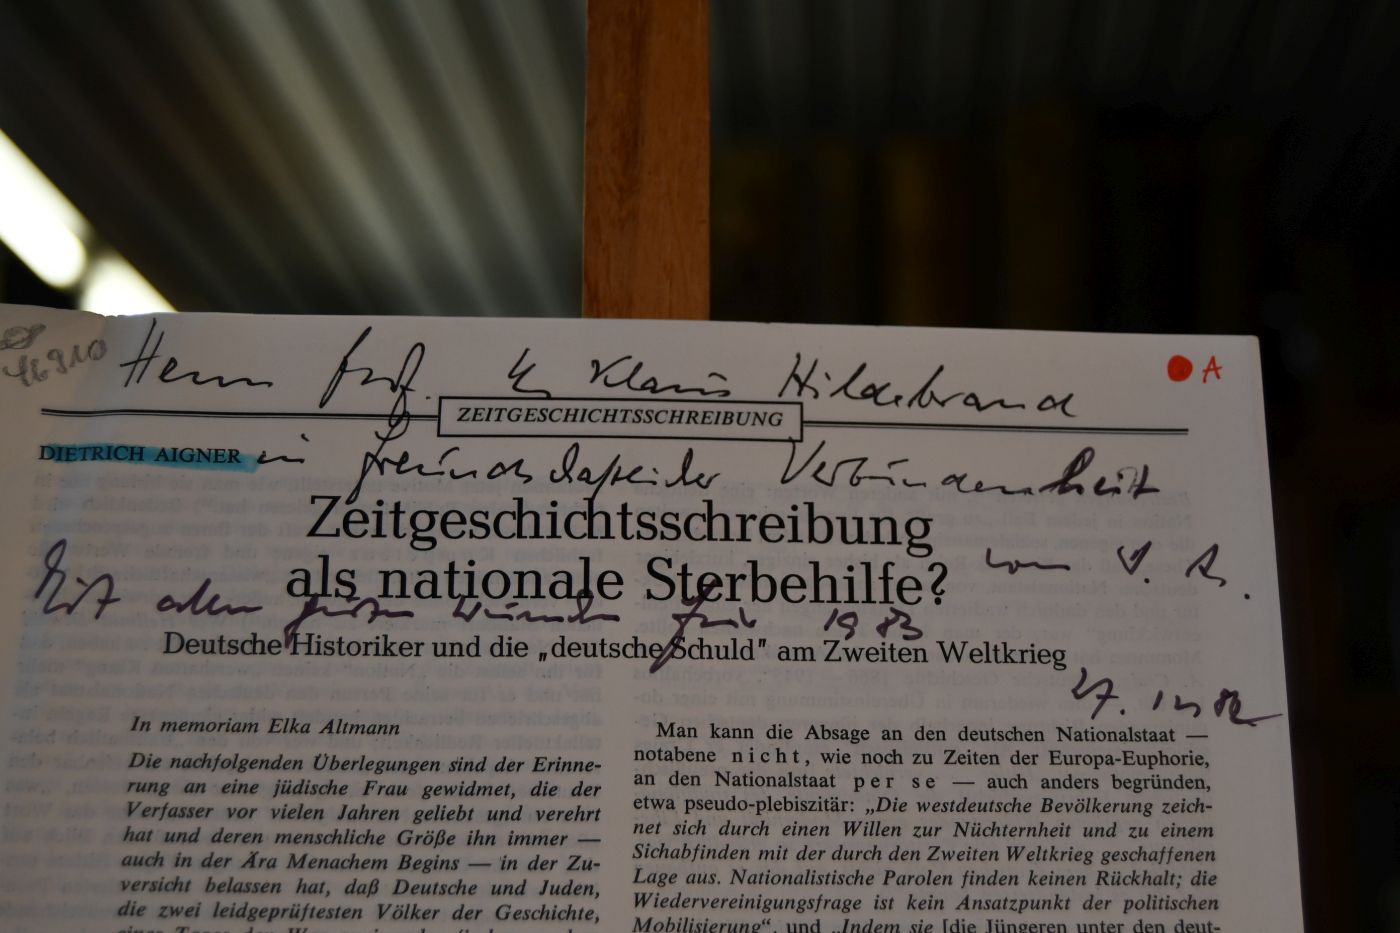 46910
Herrn Prof. Dr. Klaus Hildebrand
A
ZEITGESCHICHTSSCHREIBUNG
DIETRICH AIGNER
in freundschaftlicher Verbundenheit
Zeitgeschichtsschreibung
als nationale Sterbehilfe?
vom V. A.
Mit allen guten Wünschen für 1983
Deutsche Historiker und die „deutsche Schuld" am Zweiten Weltkrieg
27. 12 82
In memoriam Elka Altmann
Die nachfolgenden Überlegungen sind der Erinne-
rung an eine jüdische Frau gewidmet, die der
Verfasser vor vielen Jahren geliebt und verehrt
hat und deren menschliche Größe ihn immer —
auch in der Ära Menachem Begins — in der Zu-
versicht belassen hat, daß Deutsche und Juden,
die zwei leidgeprüftesten Völker der Geschichte,
Man kann die Absage an den deutschen Nationalstaat —
notabene nicht, wie noch zu Zeiten der Europa-Euphorie,
an den Nationalstaat per se — auch anders begründen,
etwa pseudo-plebiszitär: „Die westdeutsche Bevölkerung zeich-
net sich durch einen Willen zur Nüchternheit und zu einem
Sichabfinden mit der durch den Zweiten Weltkrieg geschaffenen
Lage aus. Nationalistische Parolen finden keinen Rückhalt; die
Wiedervereinigungsfrage ist kein Ansatzpunkt der politischen
Mobilisierung", und „Indem sie [die Jüngeren unter den deut-